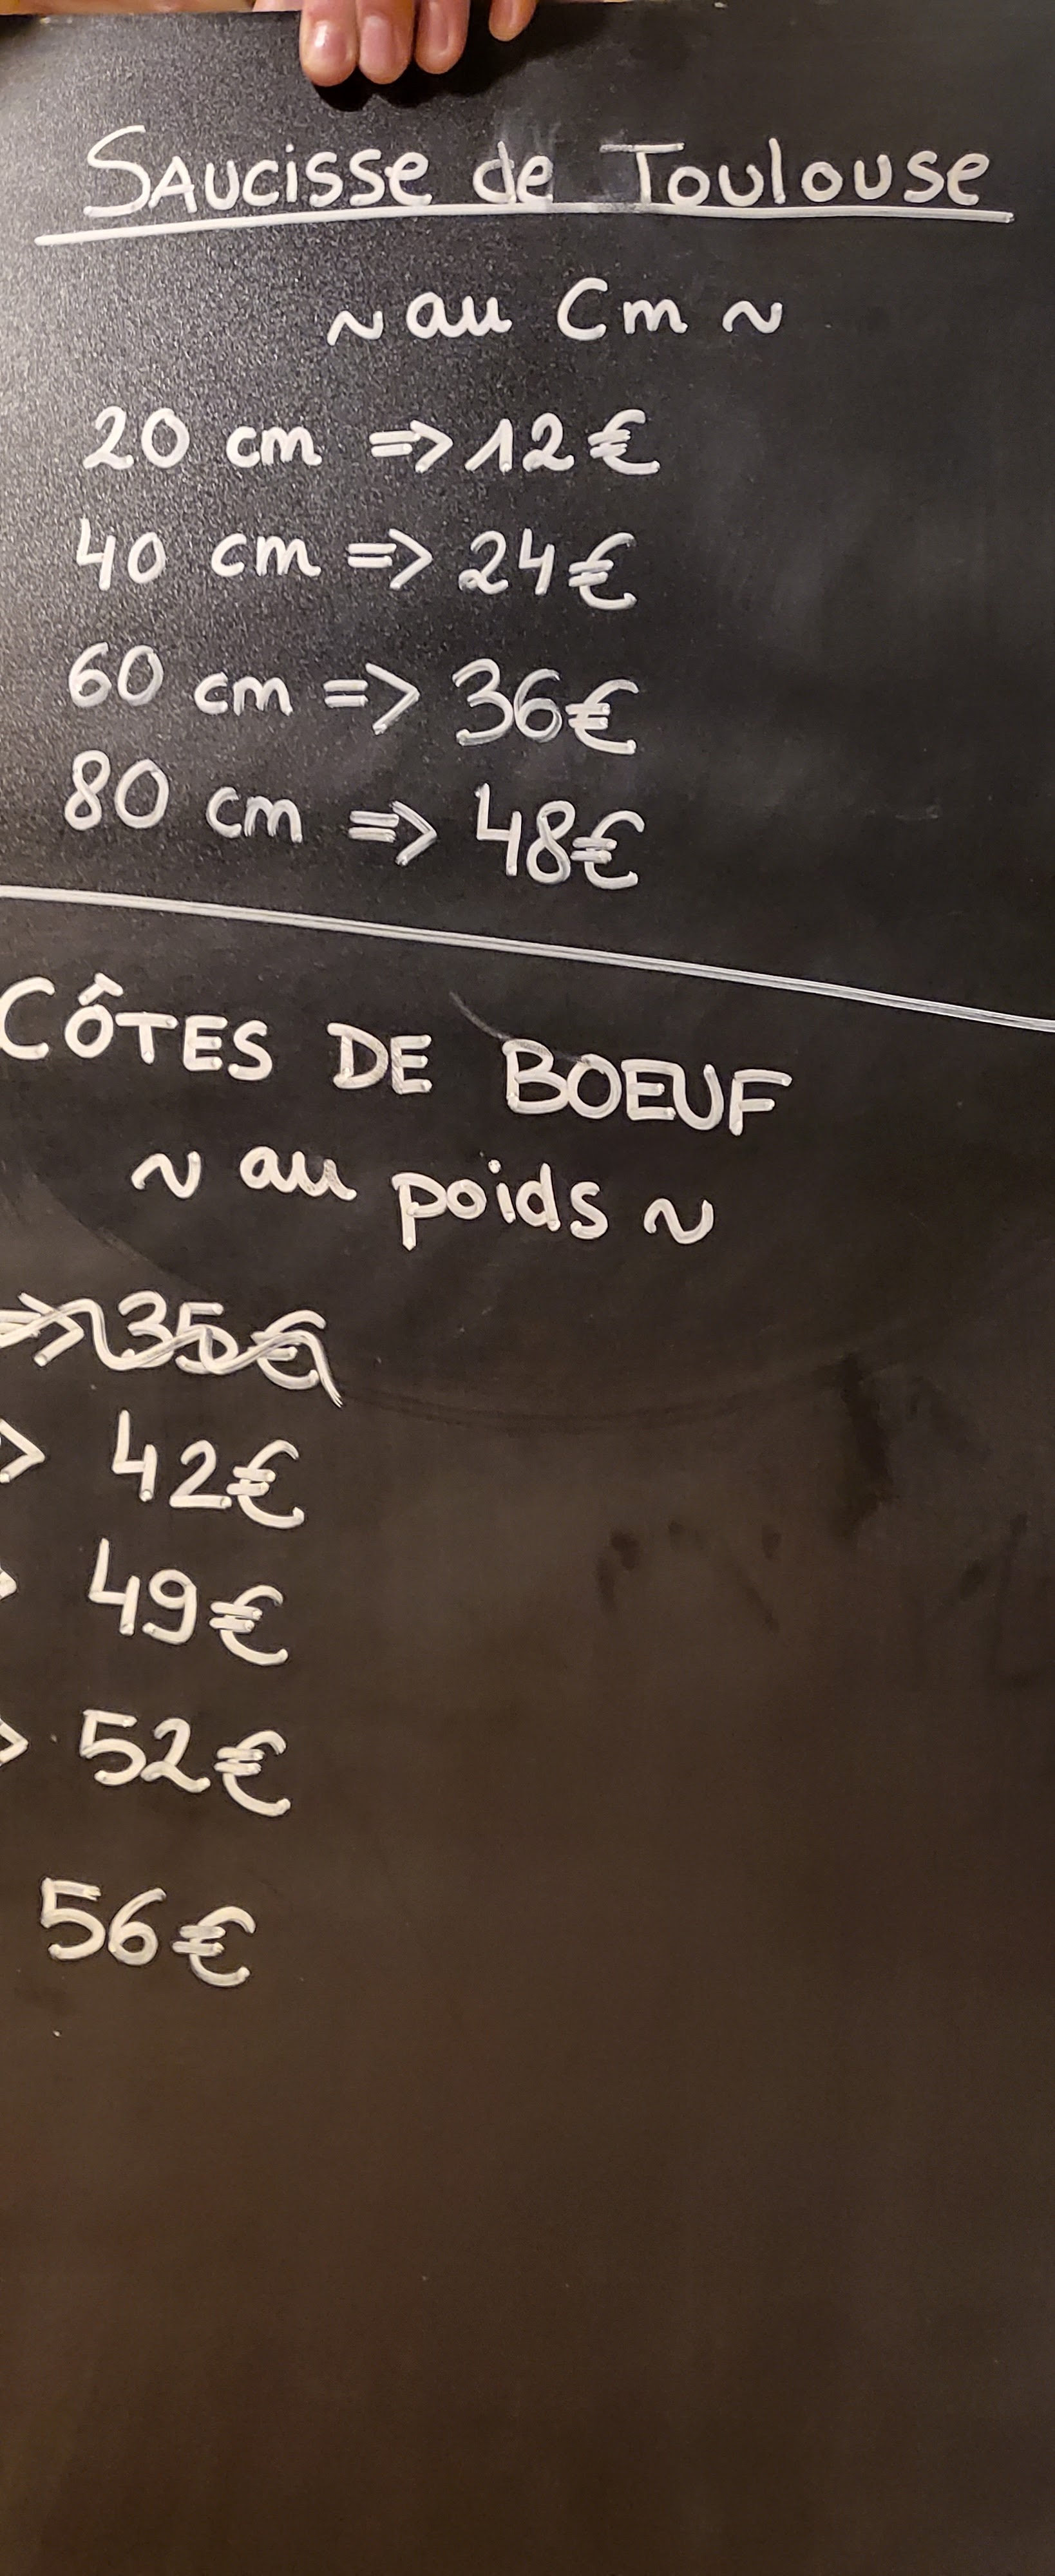 SAUCISSE de Toulouse
~ au Cm ~
20 cm => 12€
40 cm => 24€
60 cm => 36€
80 cm => 48€
CÔTES DE BOEUF
~ au poids ~
=> 35€
> 42€
> 49€
> 52€
56€